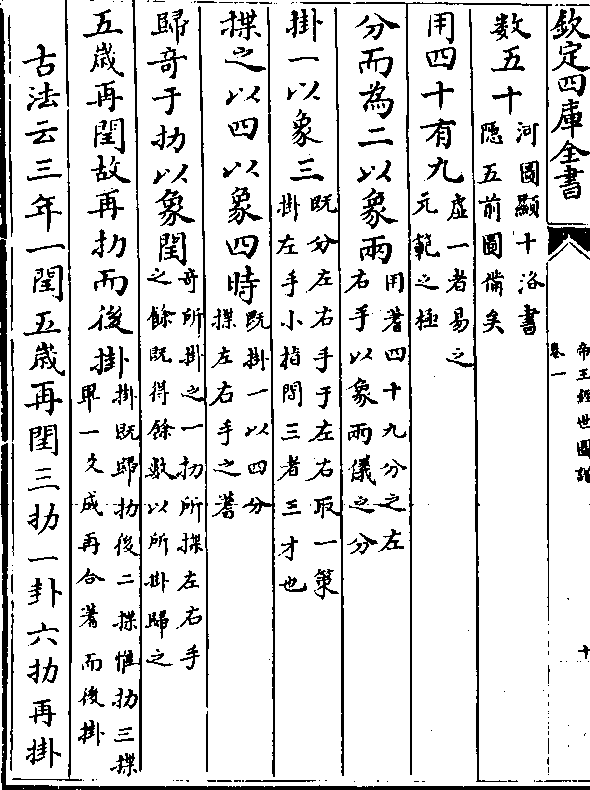 欽定四庫全書
帝王經世圖譜
卷一
十
數五十
河圖顯十洛書
隱五前圖備矣
用四十有九
虛一者易之
元範之極
分而為二以象兩
用蓍四十九分之左
右手以象兩儀之分
掛一以象三
既分左右手于左右取一策
掛左手小指間三者三才也
揲之以四以象四時
既掛一以四分
揲左右手之蓍
歸奇于扐以象閏
奇所掛之一扐所揲左右手
之餘既得餘數以所掛歸之
五歲再閏故再扐而後掛
掛既歸扐後二揲惟扐三揲
畢一爻成再合蓍而後掛
古法云三年一閏五歲再閏三扐一卦六扐再掛